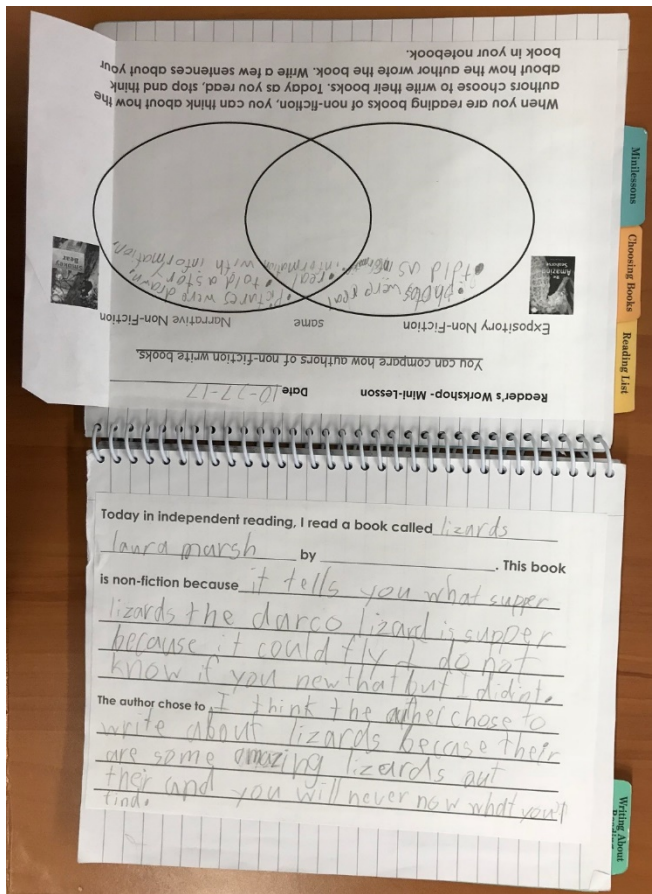 Reader's Workshop- Mini-Lesson Date 10-27-17
You can compare how authors of non-fiction write books.
Expository Non-Fiction same Narrative Non-Fiction
Amazing
Smokey
Bear
• photos were real
• told as
• real
information
• Pictures were drawn.
• told a story
with information.
When you are reading books of non-fiction, you can think about how the
authors choose to write their books. Today as you read, stop and think
about how the author wrote the book. Write a few sentences about your
book in your notebook.
Today in independent reading, I read a book called lizards
laura marsh by . This book
is non-fiction because it tells you what supper
lizards the darco lizard is supper
because it could fly I do not
know if you new that but I didint.
The author chose to I think the auther chose to
write about lizards becase their
are some amazing lizards out
their and you will never now what you'll
find.
Minilessons
Choosing Books
Reading List
Writing About